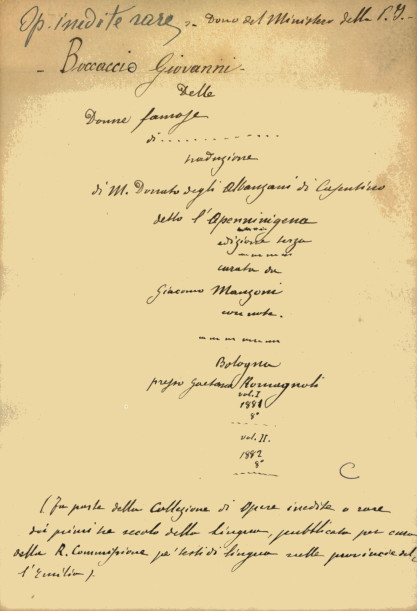 Op. inedite rare, - Dono del Ministero della P. I. -
- Boccaccio Giovanni -
Delle
Donne famose
di
traduzione
di M. Donato degli Albanzani di Casentino
detto l'Apenninigena
edizione terza
curata da
Giacomo Manzoni
con note.
Bologna
presso Gaetano Romagnoli
vol. I
1881
8°
vol. II.
1882
8°
C
(Fa parte della Collezione di Opere inedite o rare
dei primi tre secoli della lingua, pubblicata per cura
della R. Commissione pe' testi di lingua nelle provincie del-
l'Emilia).